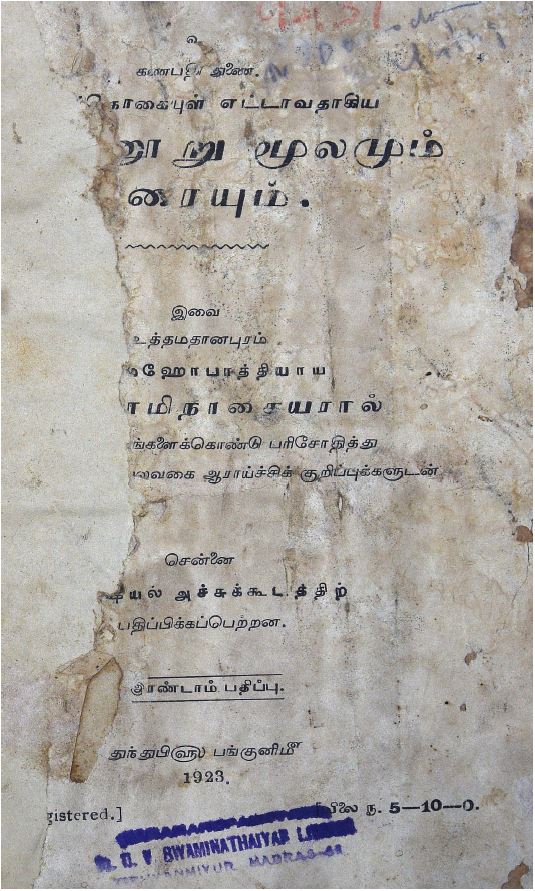 உ
கணபதி துணை.
தொகையுள் எட்டாவதாகிய
நூறு மூலமும்
ரையும்.
இவை
உத்தமதானபுரம்
மஹோபாத்தியாய
ாமிநாதையரால்
ங்களைக்கொண்டு பரிசோதித்து
வகை ஆராய்ச்சிக் குறிப்புக்களுடன்
சென்னை
அச்சுக்கூடத்திற்
பதிப்பிக்கப்பெற்றன.
இரண்டாம் பதிப்பு.
துந்துபி௵ பங்குனி௴
1923.
gistered.] [விலை ரூ. 5—10—0.
Dr. U. V. SWAMINATHAIYAR LIBRARY
TIRUVANMIYUR MADRAS